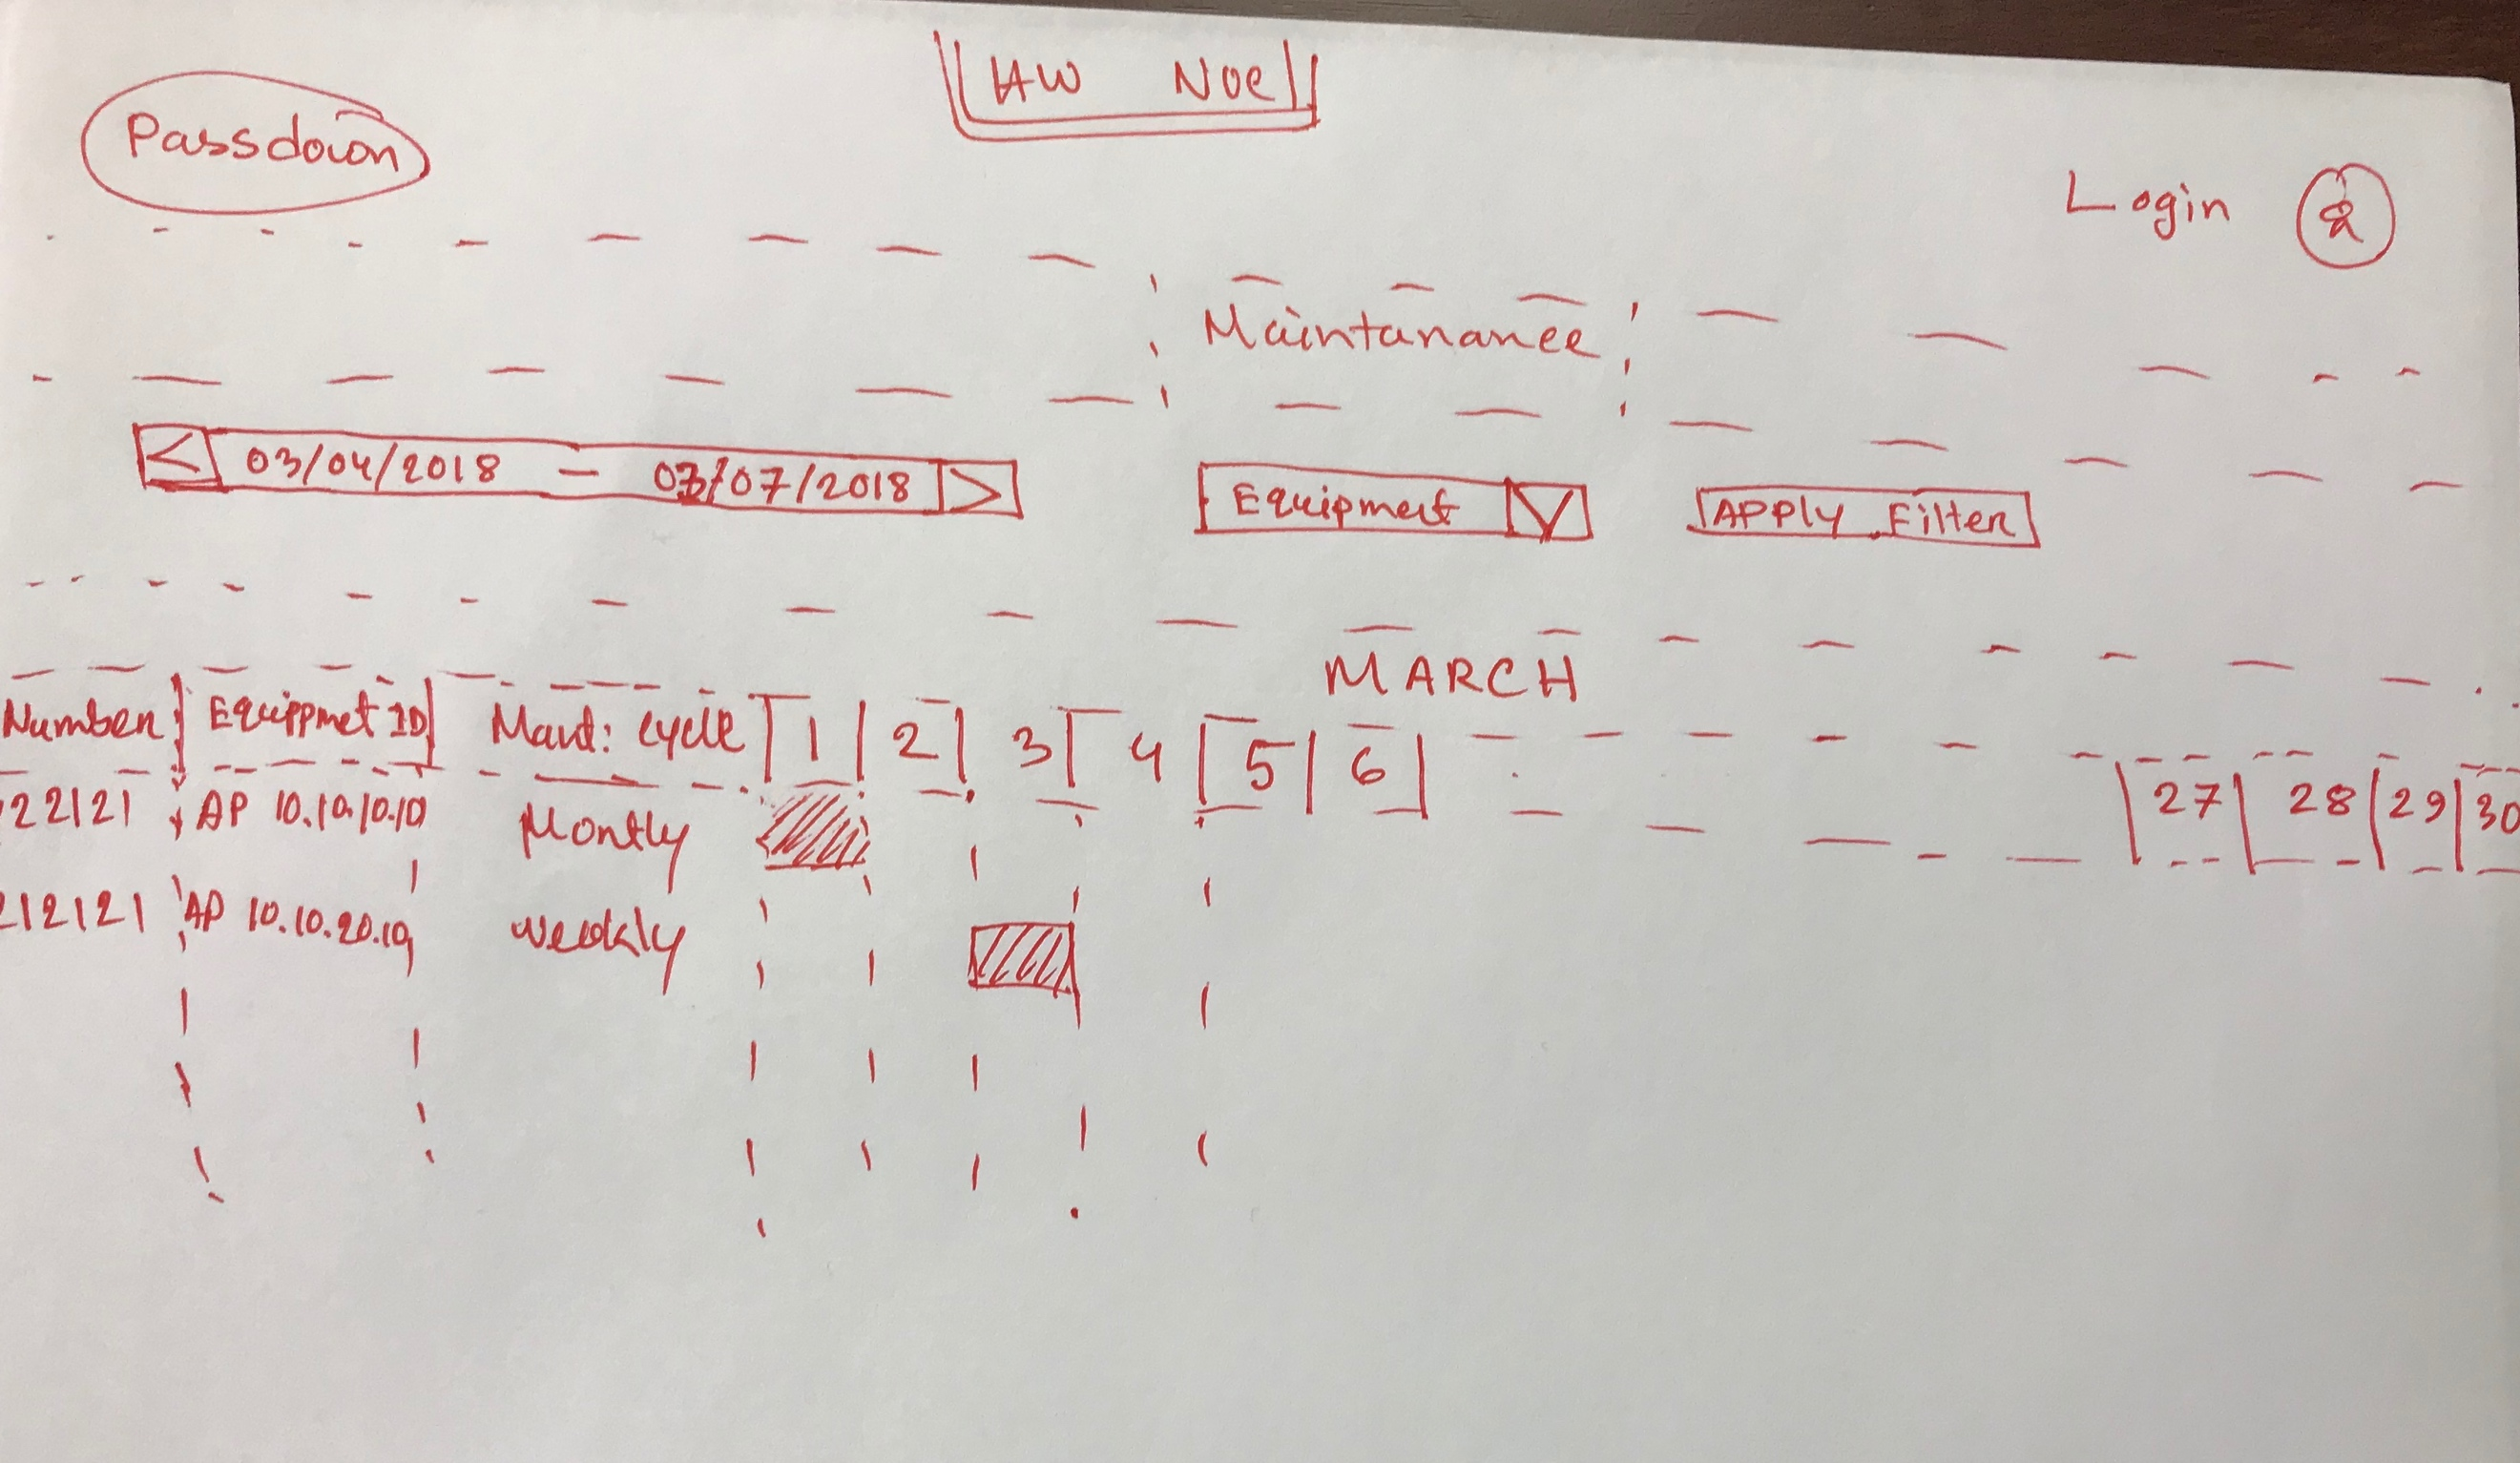 HW NOC
Passdown
Login
Maintanance
< 03/04/2018 - 03/07/2018 >
Equipment
APPly Filter
MARCH
Number Equippmet ID cycle 1 2 3 4 5 6 27 28 29 30
22121 AP 10.10.10.10 Montly
212121 AP 10.10.20.10 weekly